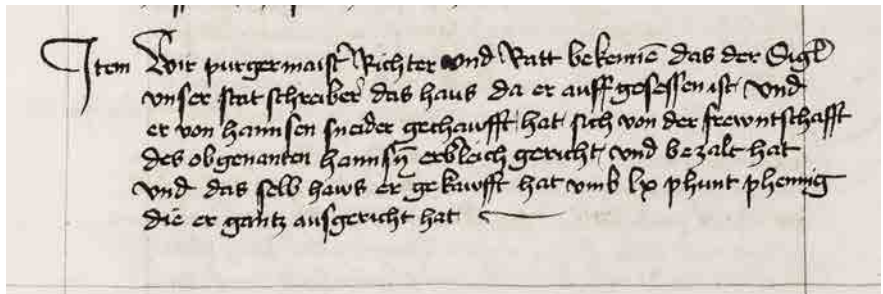 Item Wir purgermaist Richter vnd Ratt bekennē das der Sigl
vnser statschreiber das haus da er auff gesessen ist vnd
er von hannsen sneider gechaufft hat sich von der frewntschafft
des obgenanten hannsn̄ erbleich gericht vnd bezalt hat
vnd das selb haws er gekawfft hat vmb lx phunt phennig
die er gantz ausgericht hat